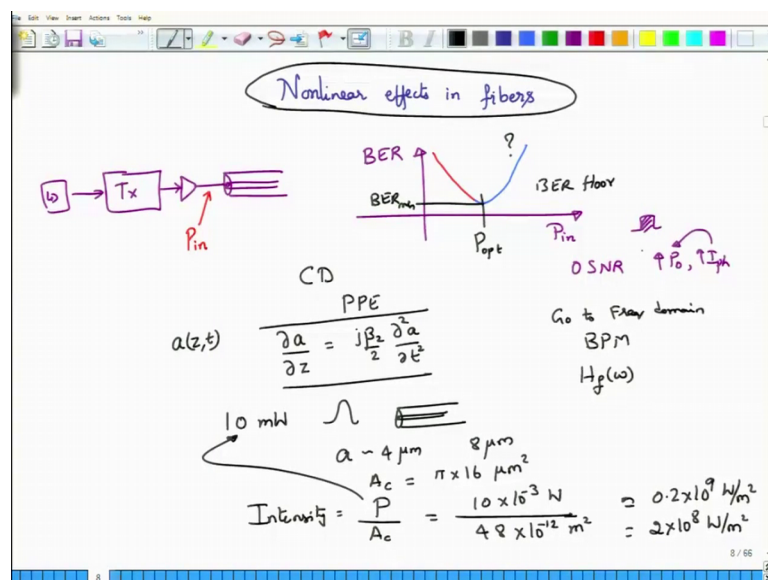 File Edit View Insert Actions Tools Help
B I
Nonlinear effects in fibers
Tx
Pin
BER
?
BERmin
BER floor
Popt
Pin
OSNR ↑P₀, ↑Iph
CD
PPE
a(z,t)
∂a/∂z = jβ₂/2 ∂²a/∂t²
Go to Freq domain
BPM
Hf(ω)
10 mW
a ~ 4 μm 8 μm
Ac = π × 16 μm²
Intensity = P/Ac = 10 × 10⁻³ W / 48 × 10⁻¹² m² = 0.2 × 10⁹ W/m²
= 2 × 10⁸ W/m²
8 / 66
8